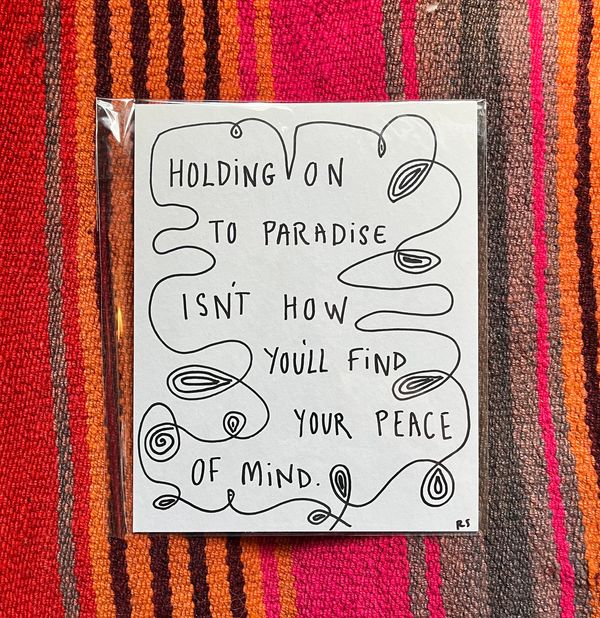 HOLDING ON
TO PARADISE
ISN'T HOW
YOU'LL FIND
YOUR PEACE
OF MIND.
RS